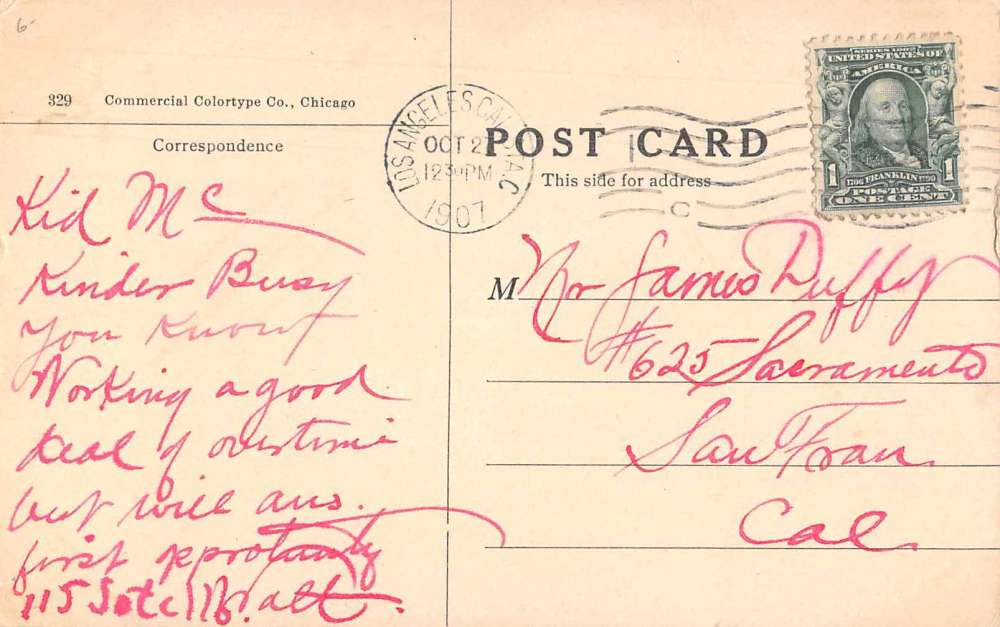 6-
329 Commercial Colortype Co., Chicago
Correspondence
Kid Mc
Kinder Busy
You Know
Working a good
deal of overtime
but will ans.
first opprotunity
115 Walt.
LOS ANGELES, CAL. A.C
OCT 2
12 30 PM
1907
C
POST CARD
This side for address
SERIES 1902
UNITED STATES OF
AMERICA
1 1706 FRANKLIN 1790 1
POSTAGE
ONE CENT
M Mr James Duffy
#625 Sacramento
San Fran.
Cal.